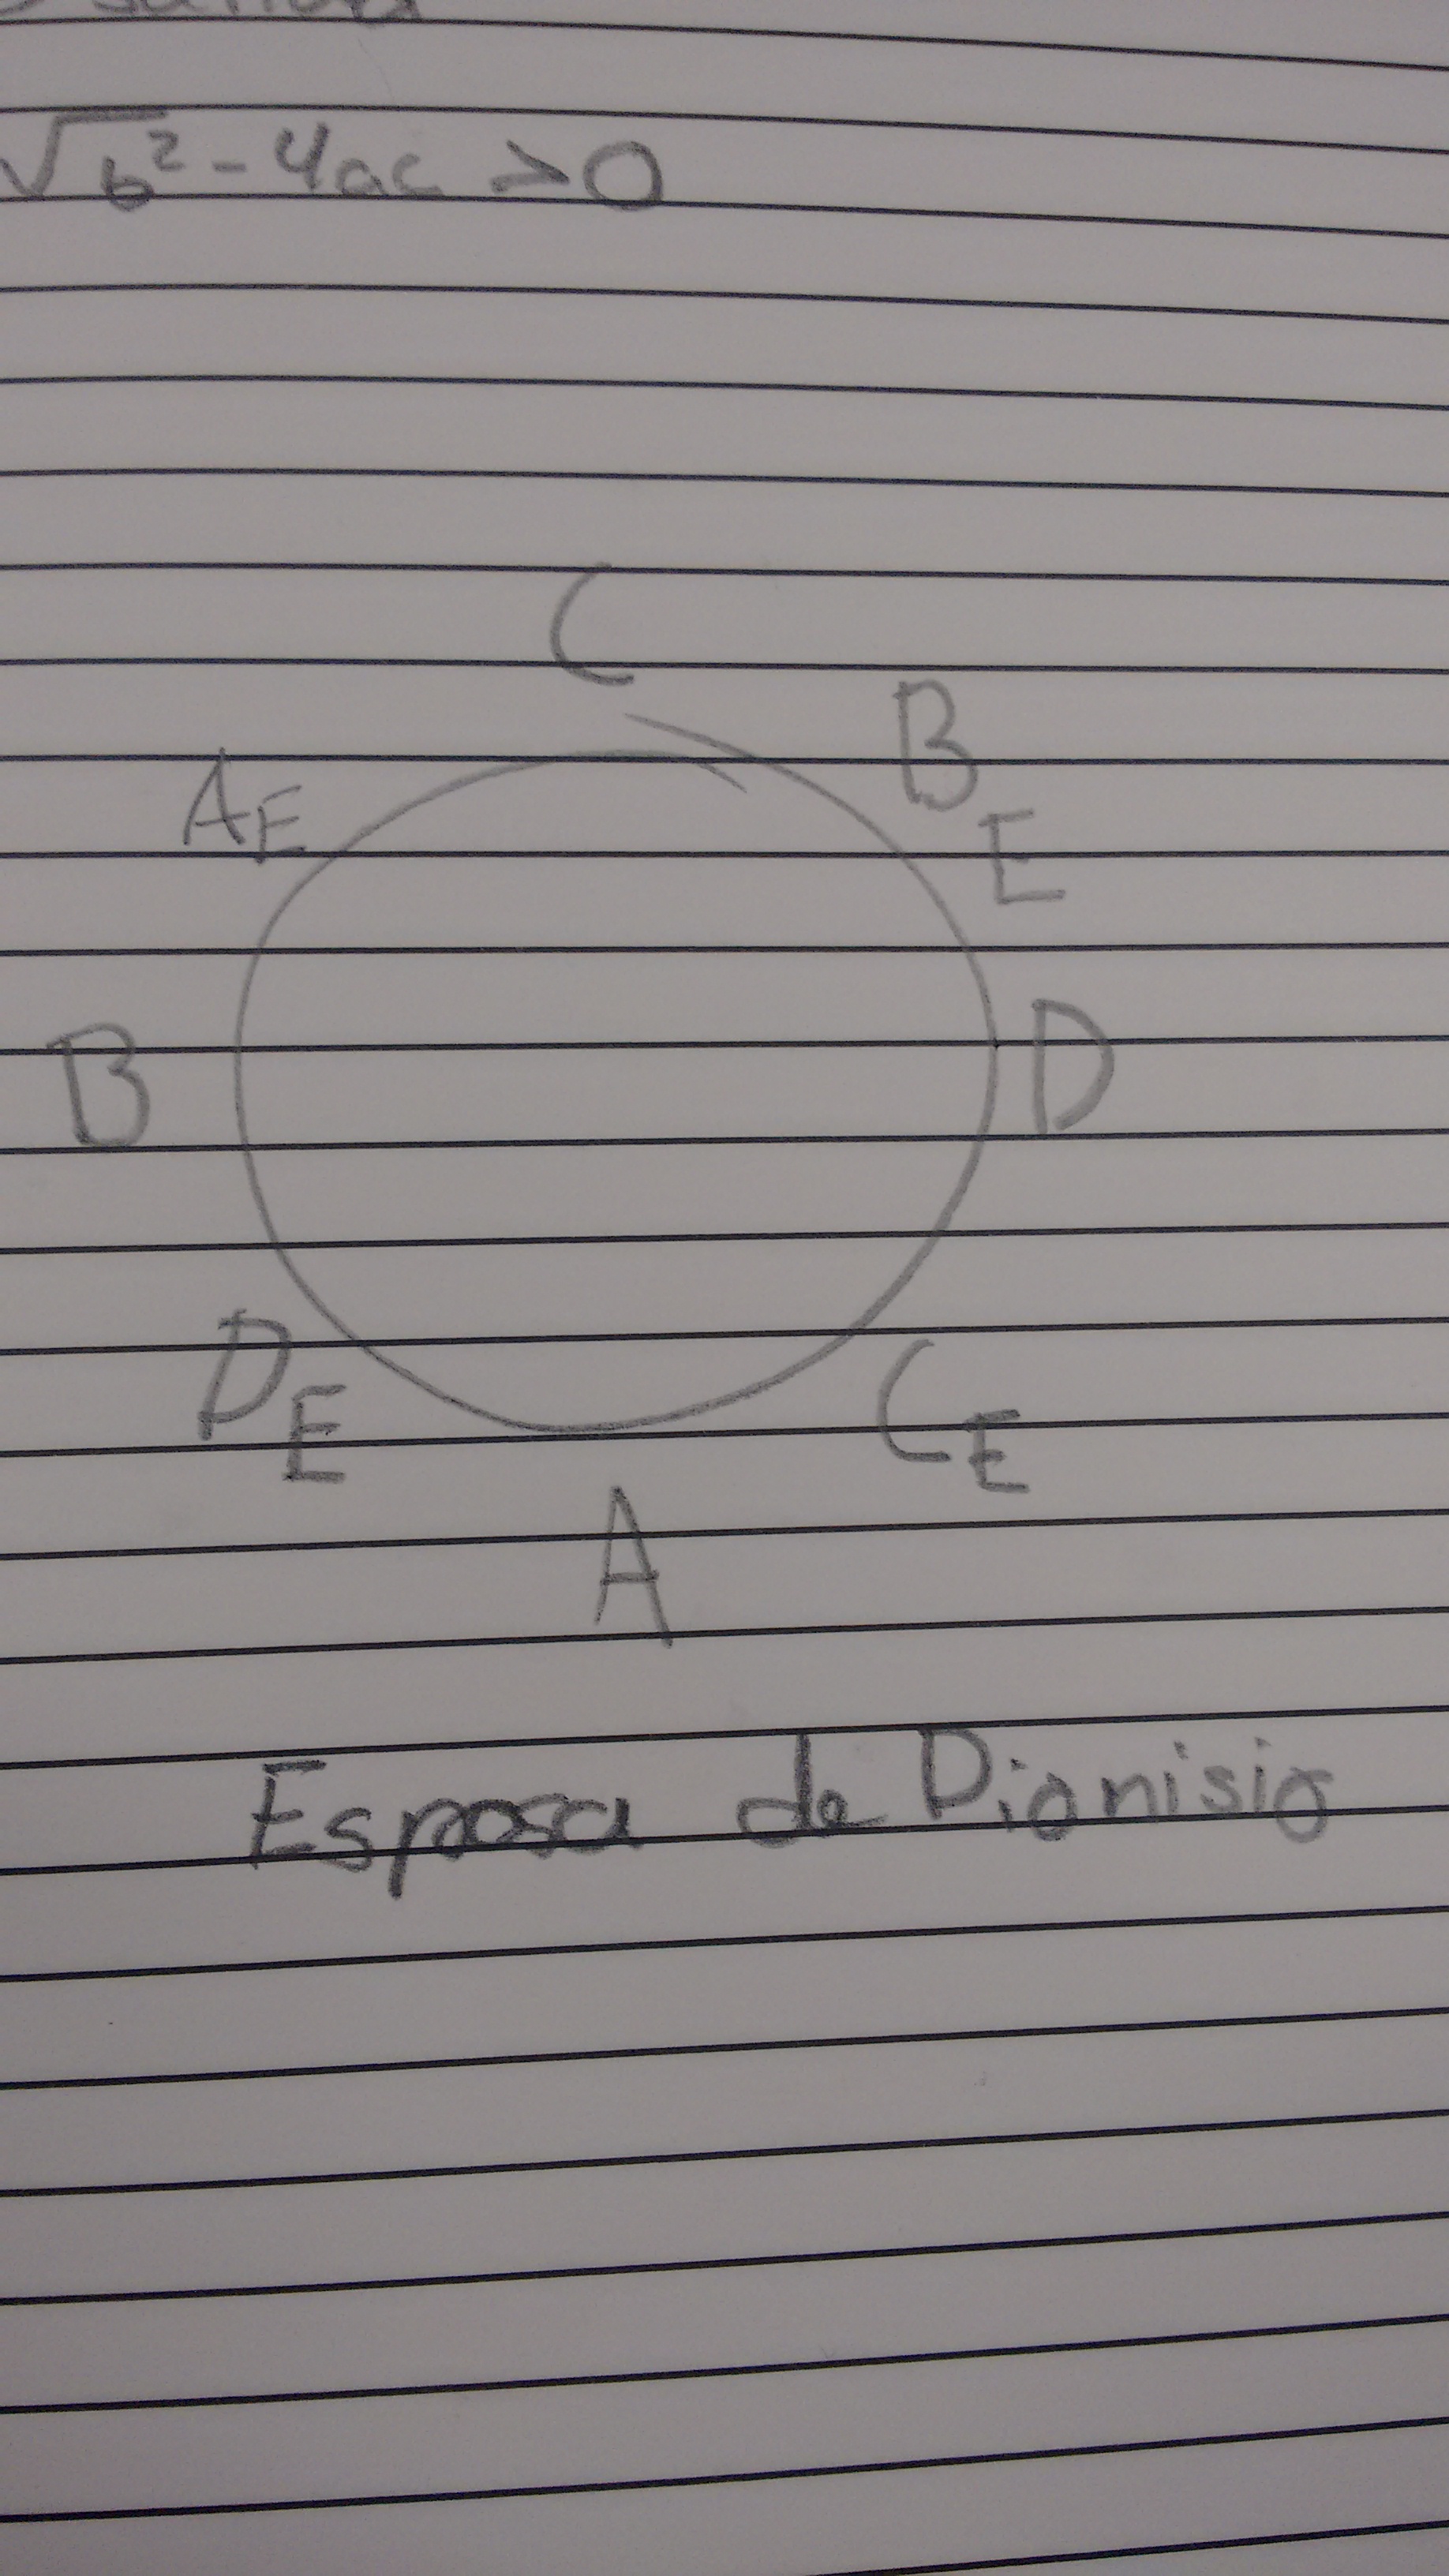 √b² - 4ac > 0
C
B E
A E
B
D
D E
C E
A
Esposa de Dionisio